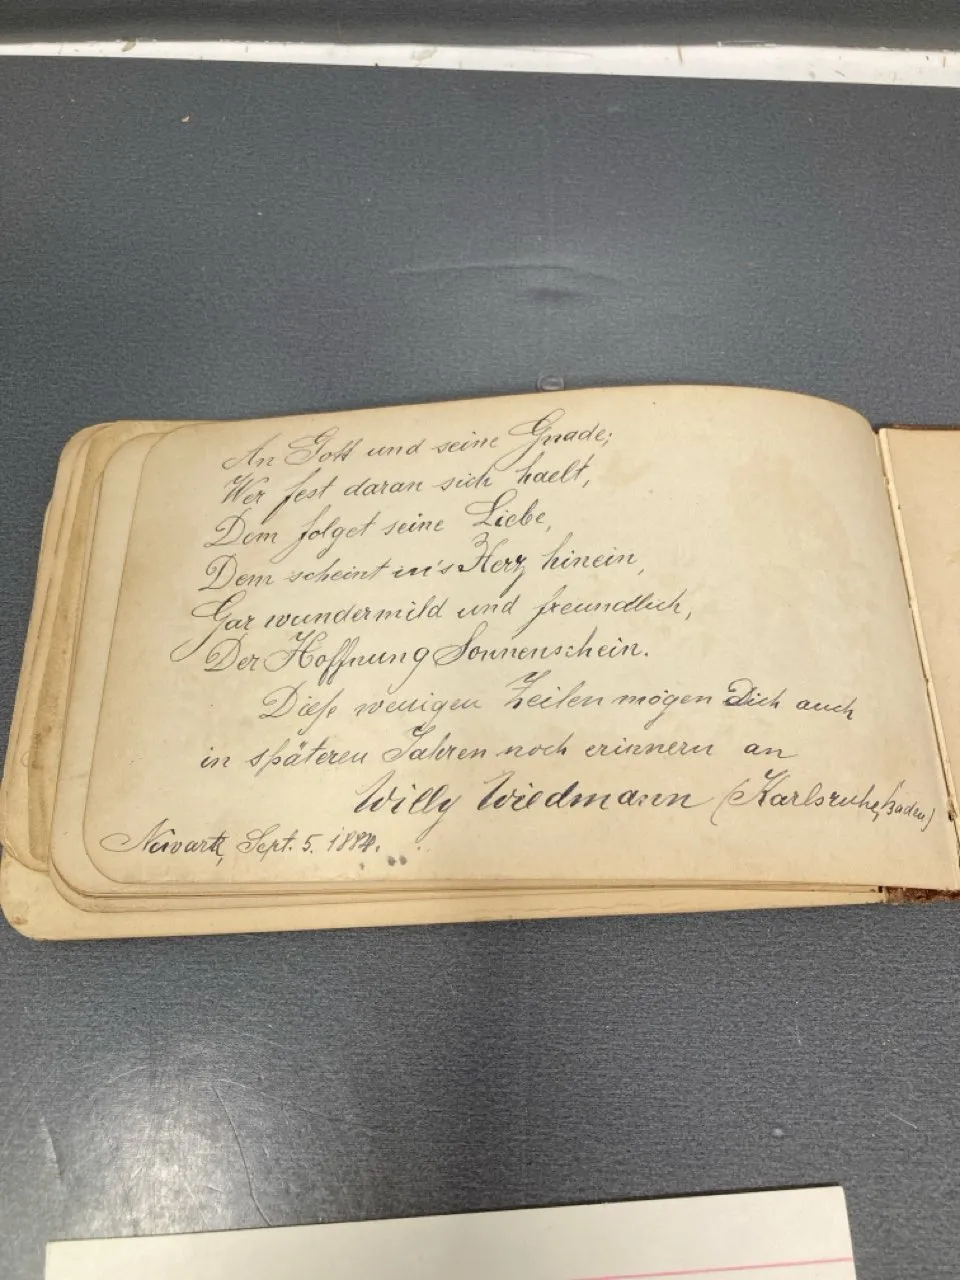 An Gott und seine Gnade;
Wer fest daran sich haelt,
Dem folget seine Liebe,
Dem scheint in's Herz hinein,
Gar wundermild und freundlich,
Der Hoffnung Sonnenschein.
Diese wenigen Zeilen mögen Dich auch
in späteren Jahren noch erinnern an
Willy Wiedmann (Karlsruhe, Baden)
Sept. 5. 1884.